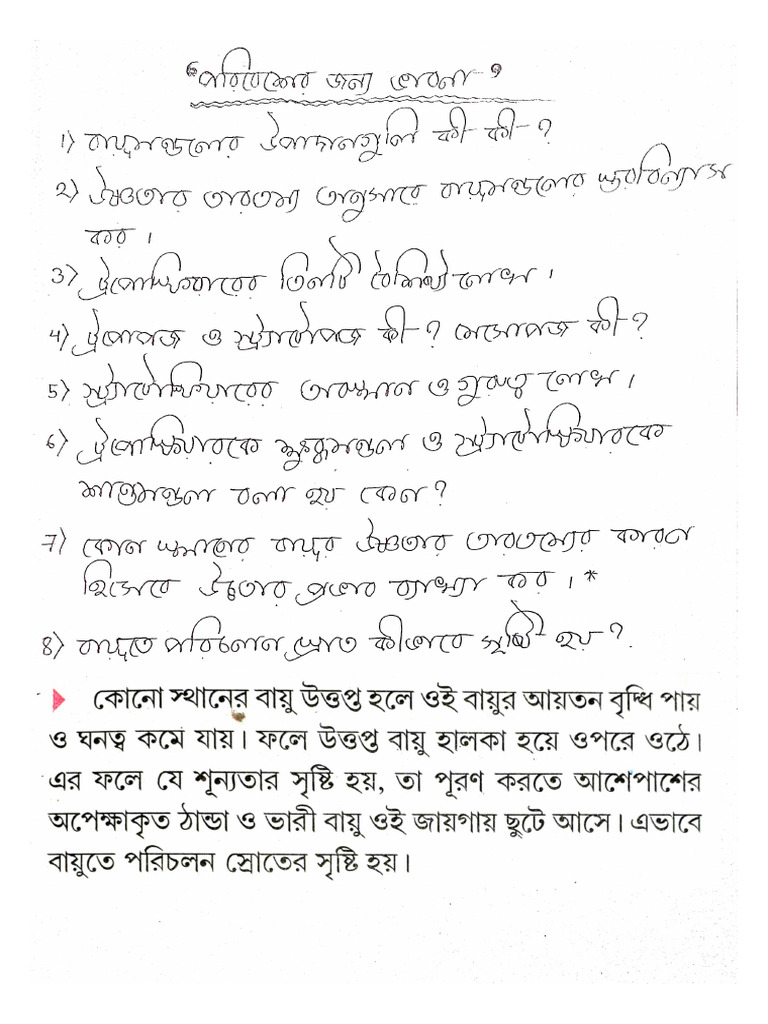 “পরিবেশের জন্য ভাবনা”
1) বায়ুমণ্ডলের উপাদানগুলি কী কী?
2) উষ্ণতার তারতম্য অনুসারে বায়ুমণ্ডলের স্তরবিন্যাস
কর।
3) ট্রপোস্ফিয়ারের তিনটি বৈশিষ্ট্য লেখ।
4) ট্রপোপজ ও স্ট্র্যাটোপজ কী? মেসোপজ কী?
5) স্ট্র্যাটোস্ফিয়ারের অবস্থান ও গুরুত্ব লেখ।
6) ট্রপোস্ফিয়ারকে ক্ষুব্ধমণ্ডল ও স্ট্র্যাটোস্ফিয়ারকে
শান্তমণ্ডল বলা হয় কেন?
7) কোন স্থানের বায়ুর উষ্ণতার তারতম্যের কারণ
হিসেবে উচ্চতার প্রভাব ব্যাখ্যা কর। *
8) বায়ুতে পরিচলন স্রোত কীভাবে সৃষ্টি হয়?
কোনো স্থানের বায়ু উত্তপ্ত হলে ওই বায়ুর আয়তন বৃদ্ধি পায়
ও ঘনত্ব কমে যায়। ফলে উত্তপ্ত বায়ু হালকা হয়ে ওপরে ওঠে।
এর ফলে যে শূন্যতার সৃষ্টি হয়, তা পূরণ করতে আশেপাশের
অপেক্ষাকৃত ঠান্ডা ও ভারী বায়ু ওই জায়গায় ছুটে আসে। এভাবে
বায়ুতে পরিচলন স্রোতের সৃষ্টি হয়।